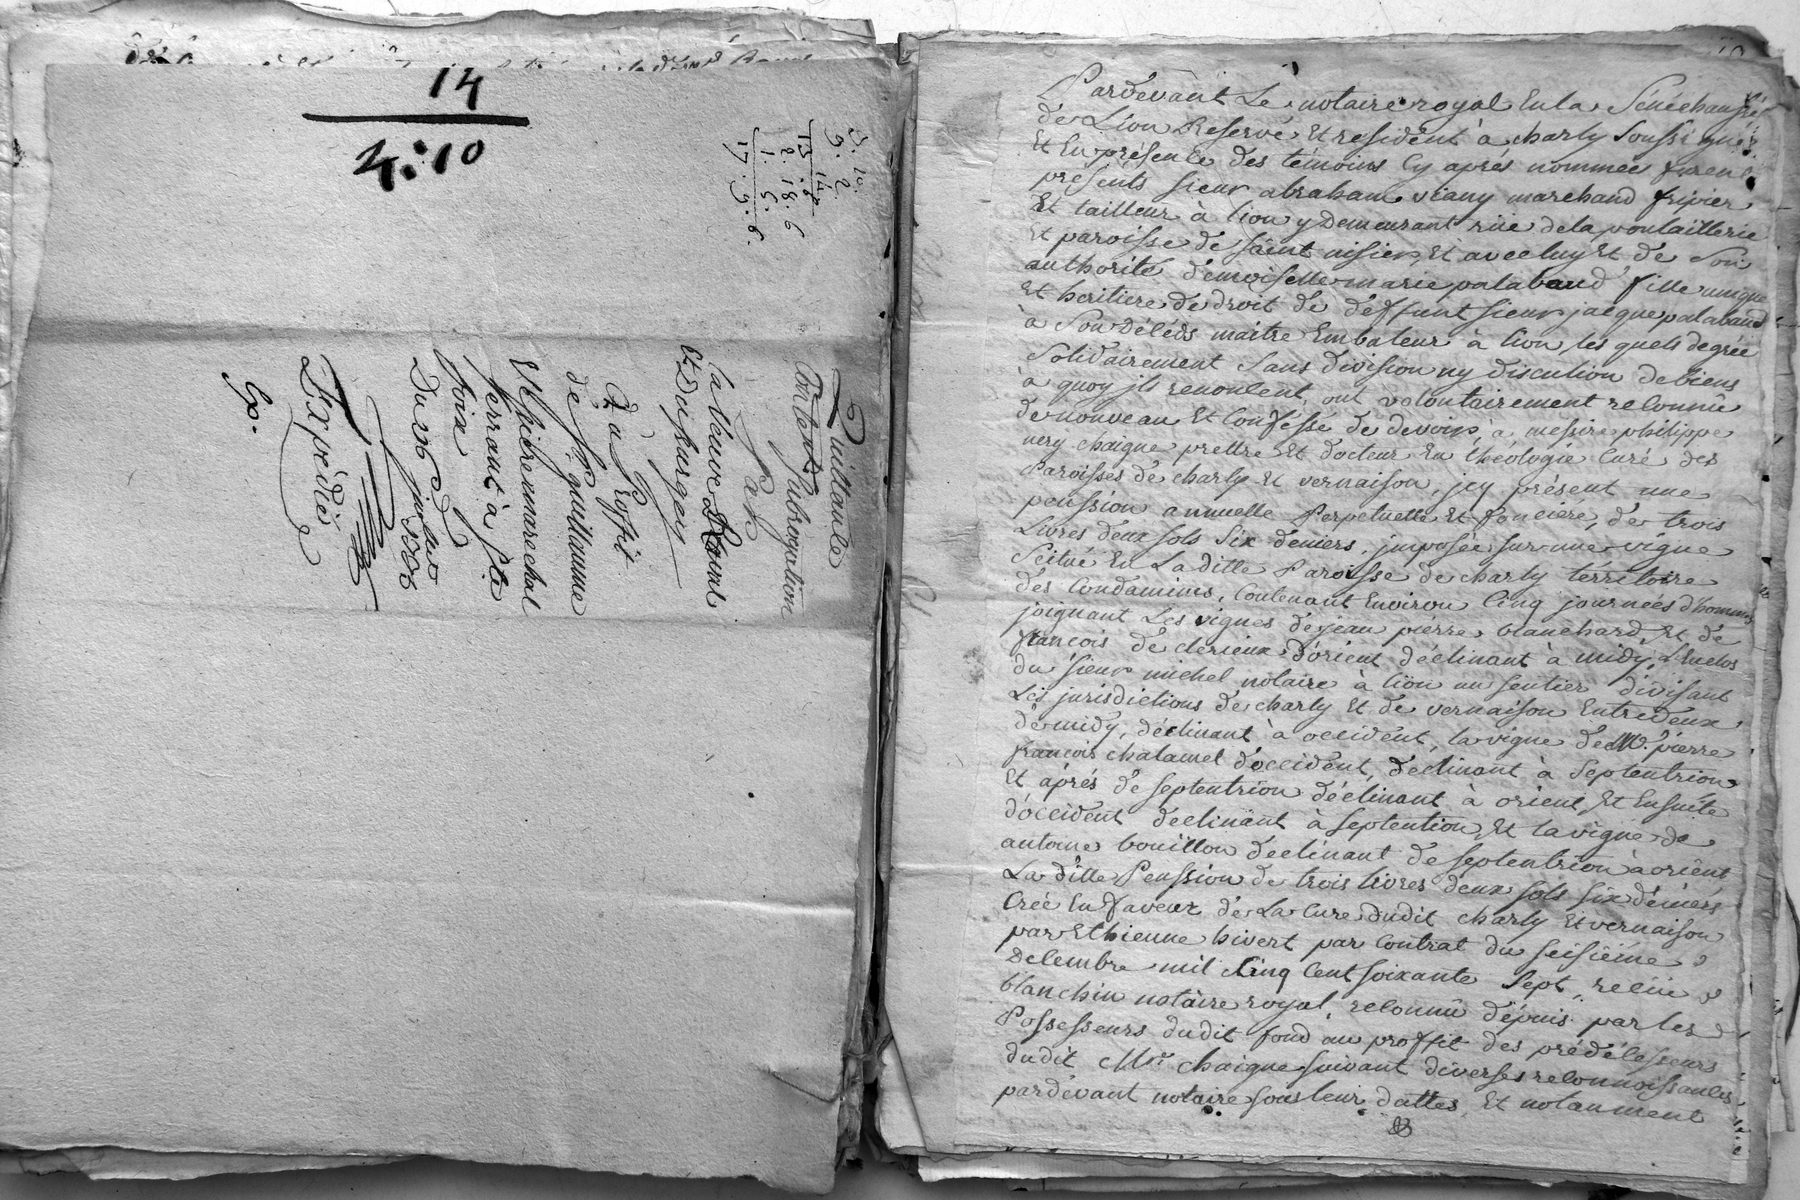 14
4:10
3. 10.
9. 2
13. 14
2. 18. 6
1. 5.
17. 9. 6.
Quittance
Contenant Subrogation
Par
la veuve
Et Dufarger
Au Proffit
de Sr guillaume
Ethienne marechal
ferrant à Ste
foix
Du 26 juillet
Expédié
Ex.
Pardevant Le notaire royal En la Sénéchaussée
de Lion Reservé Et resident à charly Soussigné
Et En présence des témoins Cy aprés nommés furent
presents sieur abraham viany marchand fripier
Et tailleur à lion y Demeurant rüe de la poulaillerie
Et paroisse de saint nisier, Et avec luy Et de Son
authorité demoiselle marie palabaud fille unique
Et heritiere de droit de deffunt sieur jacque palabaud
à Son Décéds maitre Embateur à lion, les quels de grée
Solidairement Sans division ny discution de biens
à quoy ils renoncent, ont volontairement reconnû
de nouveau Et Confessé de devoir à messire philippe
nery chaigne prettre Et docteur En théologie Curé des
Paroisses de charly Et vernaison, jcy présent une
penssion annuelle Perpetuelle Et fonciere, de trois
Livres deux sols Six deniers, jmposée sur une vigne
Scitué En La ditte Paroisse de charly térritoire
des Condamines, Contenant Environ Cinq journées d'hommes
joignant Les vignes de jean piérre blanchard, Et de
françois de clerieux d'orient déclinant à midy, L'Enclos
du sieur michel notaire à lion un sentier divisant
Les jurisdictions de charly Et de vernaison Entredeux
de midy, déclinant à occident, la vigne de Mr. pierre
françois chalamel d'occident, declinant à Septentrion
Et aprés de septentrion déclinant à orient Et Ensuite
d'occident declinant à septention, Et la vigne de
antoine boüillon declinant de septentrion à orient
La ditte Penssion de trois livres deux sols six deniers
Créé En faveur de La Cure dudit charly Et vernaison
par Ethienne hivert par Contrat du seisiéme
Decembre mil Cinq Cent soixante Sept, reçüe
blanchin notaire royal, reconnû depuis par les
Possesseurs dudit fond au proffit des prédécésseurs
dudit Mre. chaigne suivant diverses reconnoissances
pardevant notaire sous leur dattes, Et notamment